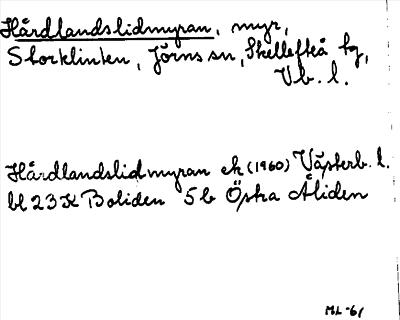 Hårdlandslidmyran, myr,
Storklinten, Jörns sn, Skellefteå kg,
Vb. l.
Hårdlandslidmyran ek (1960) Västerb. l.
bl 23 K Boliden 5 b Östra Åliden
ML -61